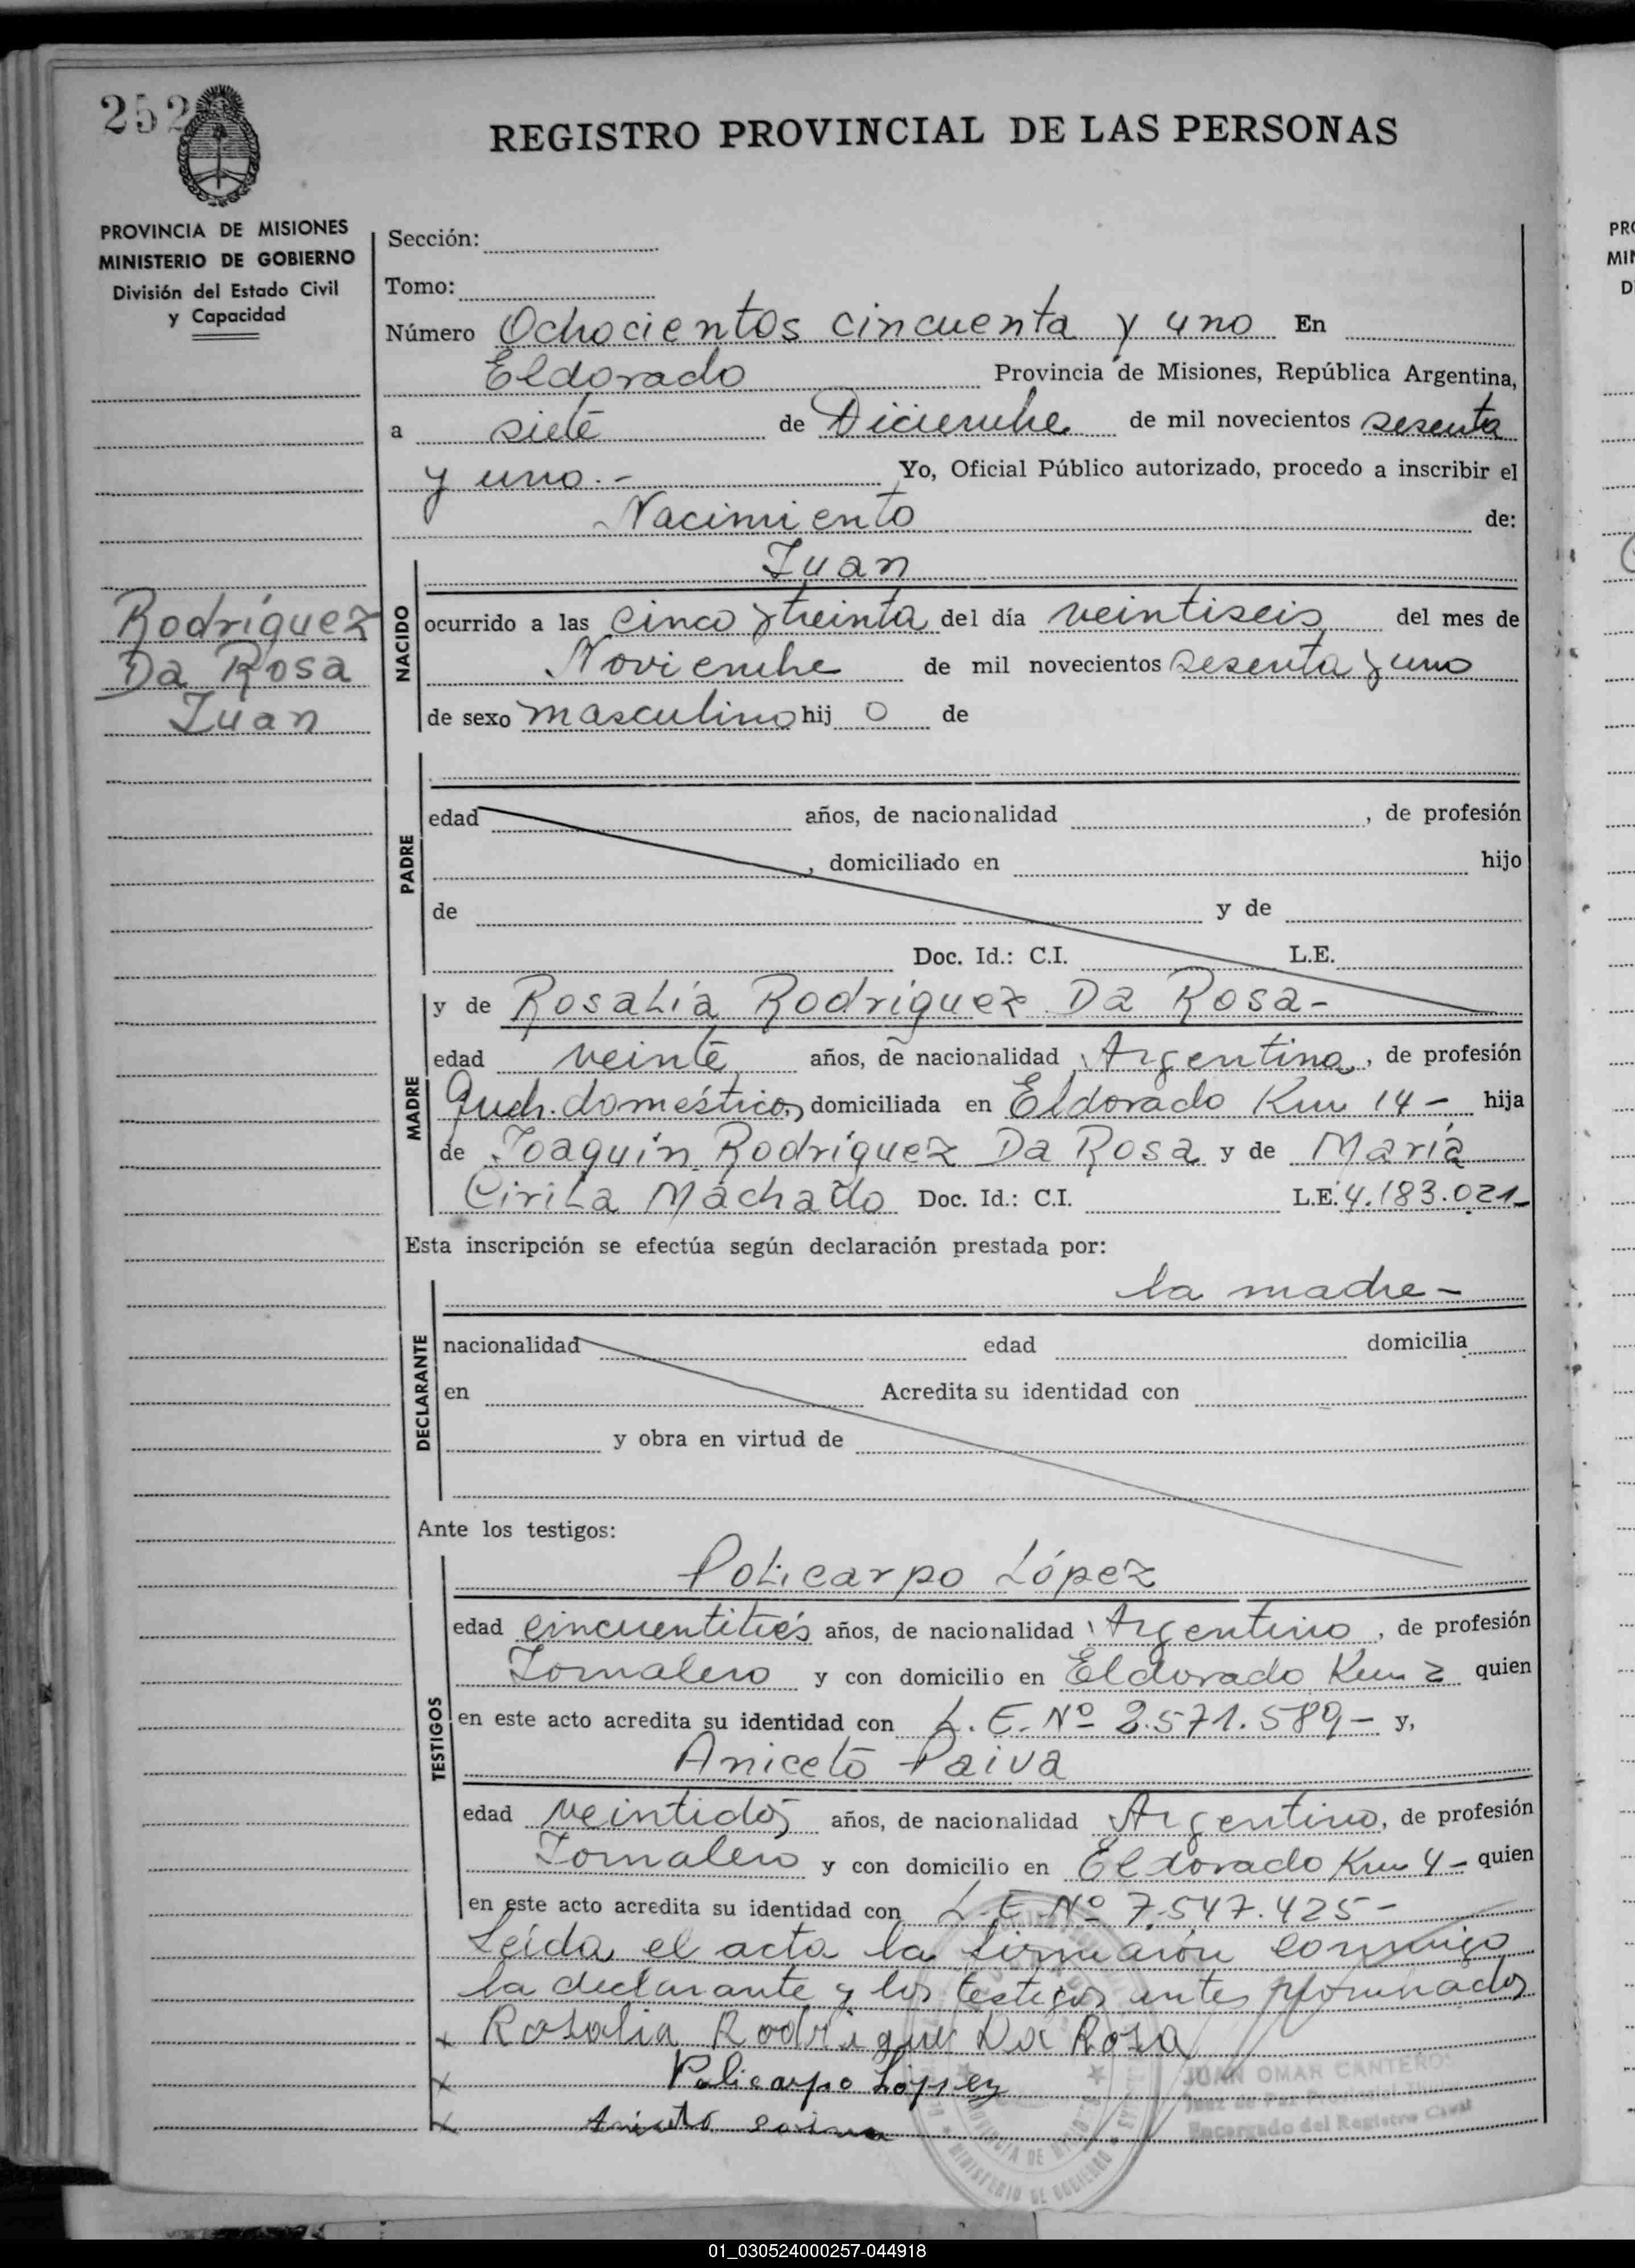 252
REGISTRO PROVINCIAL DE LAS PERSONAS
PROVINCIA DE MISIONES
MINISTERIO DE GOBIERNO
División del Estado Civil
y Capacidad
Rodríguez
Da Rosa
Juan
Sección:
Tomo:
Número Ochocientos cincuenta y uno En
Eldorado Provincia de Misiones, República Argentina,
a siete de Diciembre de mil novecientos sesenta
y uno.- Yo, Oficial Público autorizado, procedo a inscribir el
Nacimiento de:
NACIDO
Juan
ocurrido a las cinco y treinta del día veintiseis del mes de
Noviembre de mil novecientos sesenta y uno
de sexo masculino hij o de
PADRE
edad años, de nacionalidad , de profesión
, domiciliado en hijo
de y de
Doc. Id.: C.I. L.E.
MADRE
y de Rosalía Rodríguez Da Rosa-
edad veinte años, de nacionalidad Argentina, de profesión
Queh. domésticos, domiciliada en Eldorado Km 14- hija
de Joaquín Rodríguez Da Rosa y de María
Cirila Machado Doc. Id.: C.I. L.E. 4.183.021-
Esta inscripción se efectúa según declaración prestada por:
DECLARANTE
la madre-
nacionalidad edad domicilia
en Acredita su identidad con
y obra en virtud de
Ante los testigos:
TESTIGOS
Policarpo López
edad cincuentitrés años, de nacionalidad Argentino, de profesión
Jornalero y con domicilio en Eldorado Km 2 quien
en este acto acredita su identidad con L.E. Nº 2.571.589- y,
Aniceto Paiva
edad veintidós años, de nacionalidad Argentino, de profesión
Jornalero y con domicilio en Eldorado Km 4- quien
en este acto acredita su identidad con L.E. Nº 7.547.425-
Leída el acta la firmarón conmigo
la declarante y los testigos antes
x Rosalia Rodrigue Da Rosa
x Policarpo López
x
JUAN OMAR CANTEROS
Juez de Paz Provincial
Encargado del Registro Civil
PROVINCIA DE
MINISTERIO DE GOBIERNO
PRO
MIN
D
01_030524000257-044918